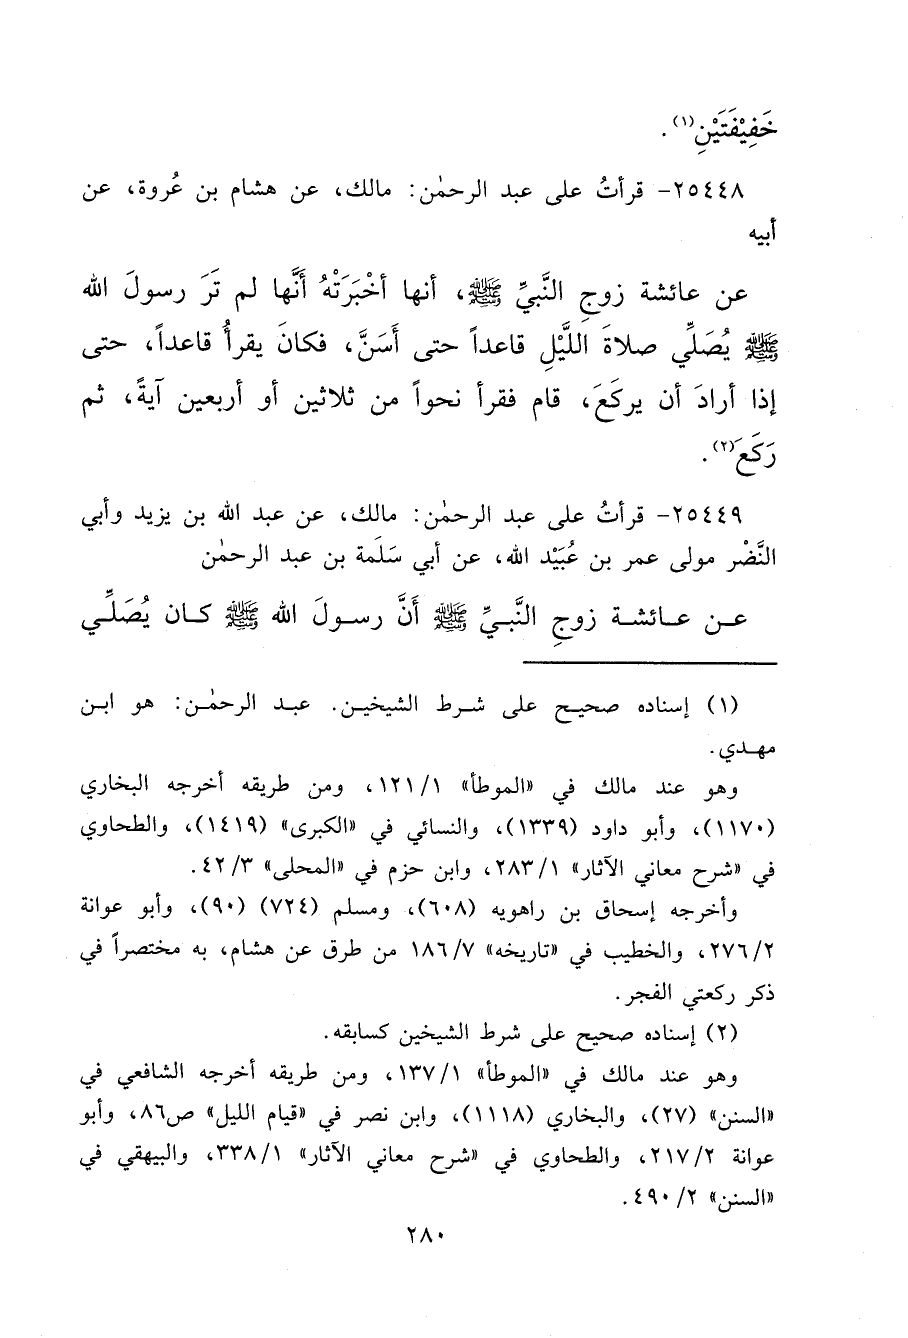 خَفِيْفَتَيْنِ(١).
٢٥٤٤٨- قرأتُ على عبد الرحمٰن: مالك، عن هشام بن عُروة، عن
أبيه
عن عائشة زوجِ النَّبيِّ ﷺ، أنها أخْبَرَتْهُ أَنَّها لم تَرَ رسولَ الله
ﷺ يُصَلِّي صلاةَ اللَّيْلِ قاعداً حتى أَسَنَّ، فكانَ يقرأُ قاعداً، حتى
إذا أرادَ أن يركَعَ، قام فقرأ نحواً من ثلاثين أو أربعين آيةً، ثم
رَكَعَ(٢).
٢٥٤٤٩- قرأتُ على عبد الرحمٰن: مالك، عن عبد الله بن يزيد وأبي
النَّضْر مولى عمر بن عُبَيْد الله، عن أبي سَلَمة بن عبد الرحمٰن
عن عائشة زوجِ النَّبيِّ ﷺ أَنَّ رسولَ الله ﷺ كان يُصَلِّي
(١) إسناده صحيح على شرط الشيخين. عبد الرحمٰن: هو ابن
مهدي.
وهو عند مالك في «الموطأ» ١٢١/١، ومن طريقه أخرجه البخاري
(١١٧٠)، وأبو داود (١٣٣٩)، والنسائي في «الكبرى» (١٤١٩)، والطحاوي
في «شرح معاني الآثار» ٢٨٣/١، وابن حزم في «المحلى» ٤٢/٣.
وأخرجه إسحاق بن راهويه (٦٠٨)، ومسلم (٧٢٤) (٩٠)، وأبو عوانة
٢٧٦/٢، والخطيب في «تاريخه» ١٨٦/٧ من طرق عن هشام، به مختصراً في
ذكر ركعتي الفجر.
(٢) إسناده صحيح على شرط الشيخين كسابقه.
وهو عند مالك في «الموطأ» ١٣٧/١، ومن طريقه أخرجه الشافعي في
«السنن» (٢٧)، والبخاري (١١١٨)، وابن نصر في «قيام الليل» ص٨٦، وأبو
عوانة ٢١٧/٢، والطحاوي في «شرح معاني الآثار» ٣٣٨/١، والبيهقي في
«السنن» ٤٩٠/٢.
٢٨٠